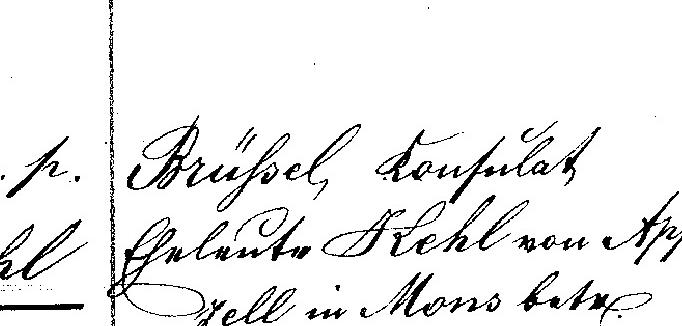 . p. Brüssel, Konsulat
hl Eheleute Kehl von App
zell in Mons betr.